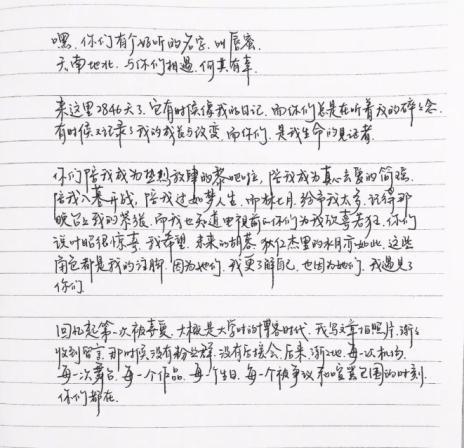 嘿,你们有个好听的名字,叫唇蜜.
天南地北,与你们相遇,何其有幸.
来这里2846天了,它有时候像我的日记,而你们总是在听着我的碎碎念.
有时候又记录了我的成长与改变,而你们,是我生命的见证者.
你们陪我成为热烈放肆的黎吧啦,陪我成为真心去爱的简瑶.
陪我 开战,陪我过如梦人生.如林七月,给予我太多,记得那
晚台上我的紧张.而我也知道电视前的你们为我欣喜若狂.你们
说叶昭很惊喜.我希望,未来的胡菱,狄仁杰里的水月亦如此.这些
角色都是我的注脚.因为她们,我更了解自己,也因为她们,我遇见了
你们.
回忆起第一次被喜爱,大概是大学时的博客时代.我写文章拍照片,渐渐
收到留言.那时候没有粉丝群,没有后援会.后来,渐渐地,每一次机场,
每一次舞台,每一个作品,每个生日,每一个被争议和喧嚣包围的时刻,
你们都在.